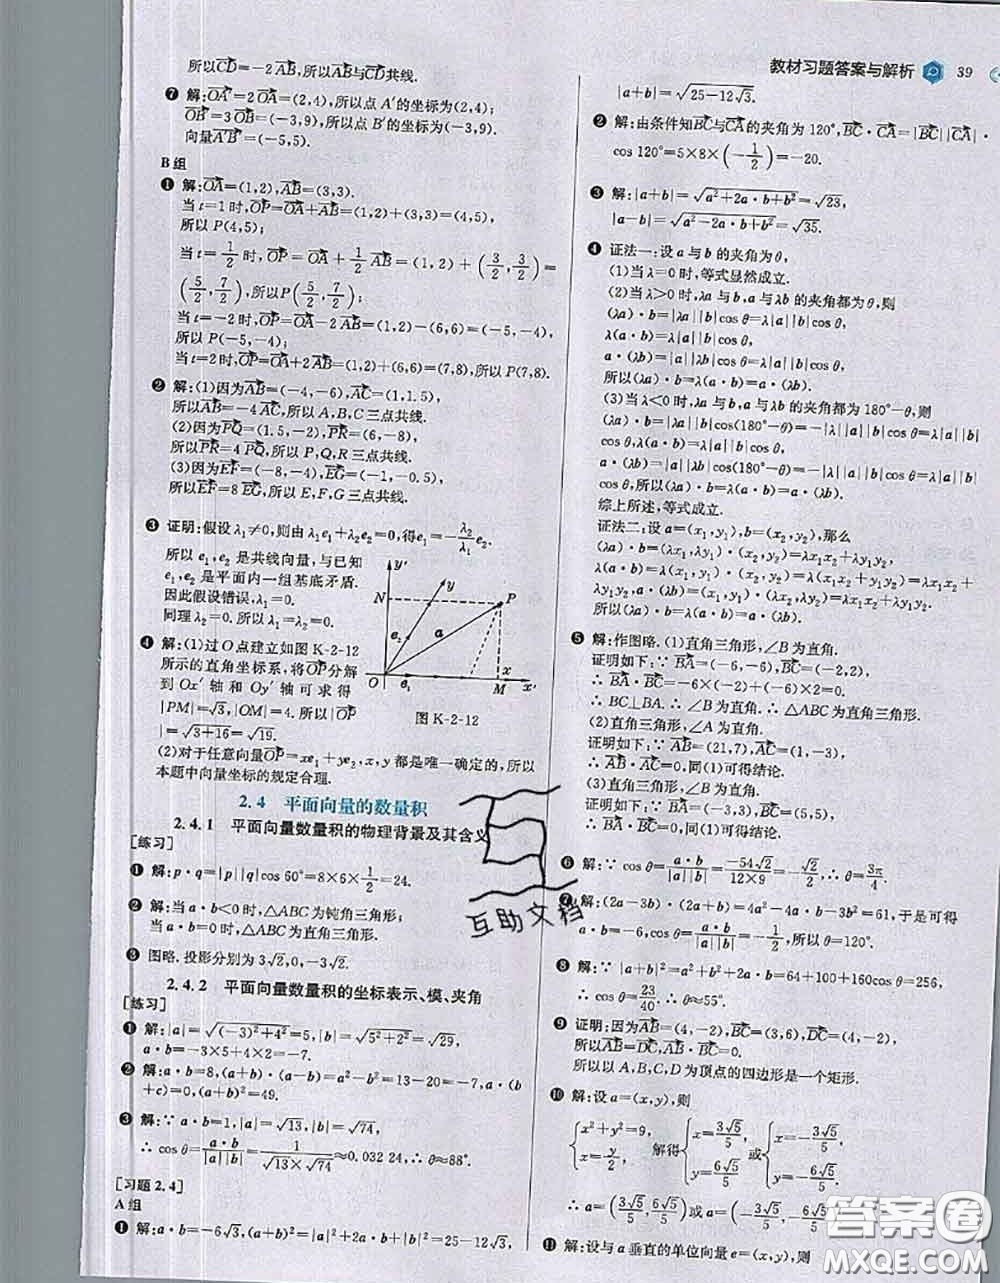 教材习题答案与解析 39
所以CD=-2AB,所以AB与CD共线.
❼ 解:OA'=2OA=(2,4),所以点 A'的坐标为(2,4);
OB'=3OB=(-3,9),所以点 B'的坐标为(-3,9).
向量A'B'=(-5,5).
B组
❶ 解:OA=(1,2),AB=(3,3).
当 t=1 时,OP=OA+AB=(1,2)+(3,3)=(4,5),
所以 P(4,5);
当 t=1/2 时,OP=OA+1/2 AB=(1,2)+(3/2,3/2)=
(5/2,7/2),所以P(5/2,7/2);
当 t=-2 时,OP=OA-2AB=(1,2)-(6,6)=(-5,-4),
所以 P(-5,-4);
当 t=2 时,OP=OA+2AB=(1,2)+(6,6)=(7,8),所以 P(7,8).
❷ 解:(1)因为AB=(-4,-6),AC=(1,1.5),
所以AB=-4AC,所以 A,B,C 三点共线.
(2)因为PQ=(1.5,-2),PR=(6,-8),
所以PR=4PQ,所以 P,Q,R 三点共线.
(3)因为EF=(-8,-4),EG=(-1,-0.5),
所以EF=8EG,所以 E,F,G 三点共线.
❸ 证明:假设 λ₁≠0,则由 λ₁e₁+λ₂e₂=0,得e₁=-λ₂/λ₁ e₂.
所以 e₁,e₂ 是共线向量,与已知
e₁,e₂ 是平面内一组基底矛盾.
因此假设错误,λ₁=0.
同理 λ₂=0.所以 λ₁=λ₂=0.
❹ 解:(1)过 O 点建立如图 K-2-12
所示的直角坐标系,将OP分解
到 Ox' 轴和 Oy' 轴可求得
|PM|=√3,|OM|=4.所以|OP|
=√(3+16)=√19.
y'
y
N
P
e₂
a
O
e₁
M
x
x'
图 K-2-12
(2)对于任意向量OP=xe₁+ye₂,x,y 都是唯一确定的,所以
本题中向量坐标的规定合理.
2.4 平面向量的数量积
2.4.1 平面向量数量积的物理背景及其含义
[练习]
❶ 解:p·q=|p||q|cos 60°=8×6×1/2=24.
❷ 解:当 a·b<0时,△ABC 为钝角三角形;
当 a·b=0时,△ABC 为直角三角形.
❸ 图略.投影分别为 3√2,0,-3√2.
2.4.2 平面向量数量积的坐标表示、模、夹角
[练习]
❶ 解:|a|=√((-3)²+4²)=5,|b|=√(5²+2²)=√29,
a·b=-3×5+4×2=-7.
❷ 解:a·b=8,(a+b)·(a-b)=a²-b²=13-20=-7,a·(b
+c)=0,(a+b)²=49.
❸ 解:∵ a·b=1,|a|=√13,|b|=√74,
∴ cos θ=a·b/|a||b|=1/(√13×√74)≈0.032 24,∴ θ≈88°.
[习题 2.4]
A 组
❶ 解:a·b=-6√3,(a+b)²=|a|²+2a·b+|b|²=25-12√3,
|a+b|=√(25-12√3).
❷ 解:由条件知BC与CA的夹角为 120°,BC·CA=|BC||CA|·
cos 120°=5×8×(-1/2)=-20.
❸ 解:|a+b|=√(a²+2a·b+b²)=√23,
|a-b|=√(a²-2a·b+b²)=√35.
❹ 证法一:设 a 与 b 的夹角为 θ,
(1)当 λ=0时,等式显然成立.
(2)当 λ>0时,λa 与 b,a 与 λb 的夹角都为 θ,则
(λa)·b=|λa||b|cos θ=λ|a||b|cos θ,
λ(a·b)=λ|a||b|cos θ,
a·(λb)=|a||λb|cos θ=λ|a||b|cos θ,
所以(λa)·b=λ(a·b)=a·(λb).
(3)当 λ<0时,λa 与 b,a 与 λb 的夹角都为 180°-θ,则
(λa)·b=|λa||b|cos(180°-θ)=-|λ||a||b|cos θ=λ|a||b|
cos θ,λ(a·b)=λ|a||b|cos θ,
a·(λb)=|a||λb|cos(180°-θ)=-|λ||a||b|cos θ=λ|a||b|
cos θ,所以(λa)·b=λ(a·b)=a·(λb).
综上所述,等式成立.
证法二:设 a=(x₁,y₁),b=(x₂,y₂),那么
(λa)·b=(λx₁,λy₁)·(x₂,y₂)=λx₁x₂+λy₁y₂,
λ(a·b)=λ(x₁,y₁)·(x₂,y₂)=λ(x₁x₂+y₁y₂)=λx₁x₂+
λy₁y₂,
a·(λb)=(x₁,y₁)·(λx₂,λy₂)=λx₁x₂+λy₁y₂,
所以(λa)·b=λ(a·b)=a·(λb).
❺ 解:作图略.(1)直角三角形,∠B 为直角.
证明如下:∵ BA=(-6,-6),BC=(-2,2),
∴ BA·BC=-6×(-2)+(-6)×2=0,
∴ BC⊥BA.∴ ∠B=90°.∴ △ABC 为直角三角形.
(2)直角三角形,∠A 为直角.
证明如下:∵ AB=(21,7),AC=(1,-3),
∴ AB·AC=0,同(1)可得结论.
(3)直角三角形,∠B 为直角.
证明如下:∵ BA=(-3,3),BC=(5,5),
∴ BA·BC=0,同(1)可得结论.
❻ 解:∵ cos θ=a·b/|a||b|=-54√2/(12×9)=-√2/2,∴ θ=3π/4.
❼ 解:(2a-3b)·(2a+b)=4a²-4a·b-3b²=61,于是可得
a·b=-6.∵ cos θ=a·b/|a||b|=-1/2,所以 θ=120°.
❽ 解:∵ a²+2a·b+b²=256,∴ 64+100+160cos θ=256,
∴ cos θ=23/40.∴ θ≈55°.
❾ 证明:因为AB=(4,-2),BC=(3,6),DC=(4,-2),
所以AB=DC,AB·BC=0.
所以以 A,B,C,D 为顶点的四边形是一个矩形.
❿ 解:设 a=(x,y),则
{x²+y²=9, x=y/2, 解得 {x=3√5/5, y=6√5/5 或 {x=-3√5/5, y=-6√5/5.
∴ a=(3√5/5,6√5/5)或 a=(-3√5/5,-6√5/5).
⓫ 解:设与 a 垂直的单位向量 e=(x,y),则
互助文档
答案圈
MXQE.COM